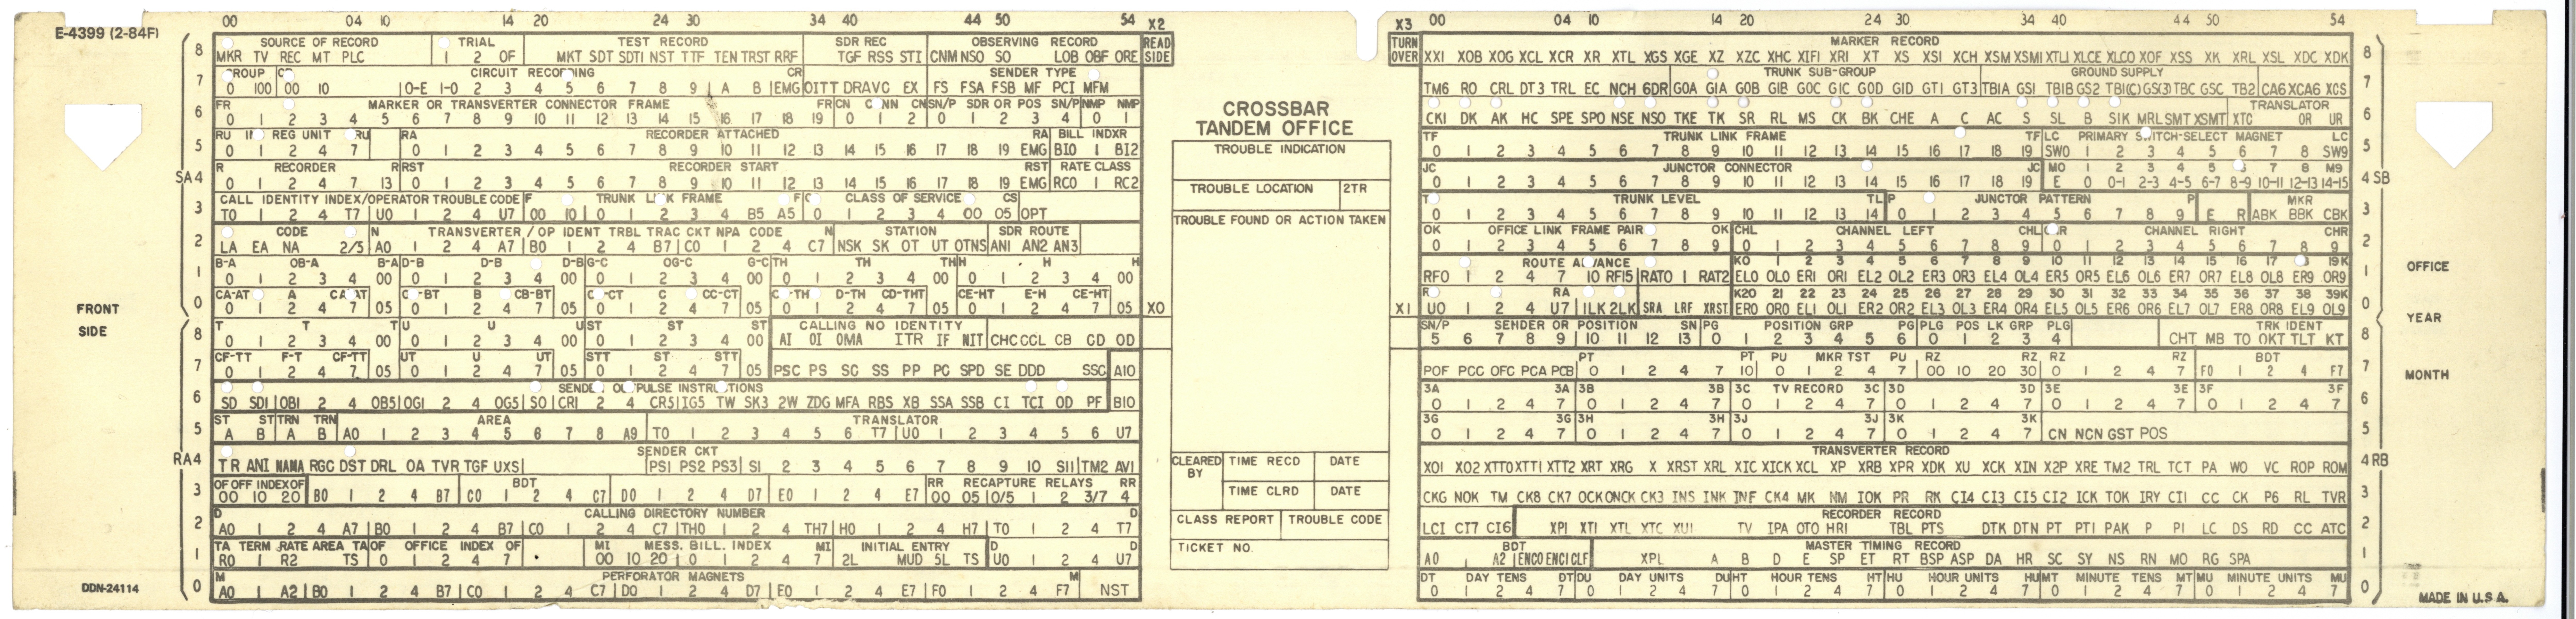 00 04 10 14 20 24 30 34 40 44 50 54 X2
E-4399 (2-84F)
8 SOURCE OF RECORD TRIAL TEST RECORD SDR REC OBSERVING RECORD READ SIDE
MKR TV REC MT PLC 1 2 OF MKT SDT SDTI NST TTF TEN TRST RRF TGF RSS STI CNM NSO SO LOB OBF ORE
7 CIRCUIT RECORDING CR SENDER TYPE
0 100 00 10 0-E 1-0 2 3 4 5 6 7 8 9 A B EMG OITT DRAVC EX FS FSA FSB MF PCI MFM
6 FR MARKER OR TRANSVERTER CONNECTOR FRAME FR CN CN SN/P SDR OR POS SN/P NMP NMP
0 1 2 3 4 5 6 7 8 9 10 11 12 13 14 15 16 17 18 19 0 1 2 0 1 2 3 4 0 1
5 RU REG UNIT RU RA RECORDER ATTACHED RA BILL INDXR
0 1 2 4 7 0 1 2 3 4 5 6 7 8 9 10 11 12 13 14 15 16 17 18 19 EMG BI0 1 BI2
SA4 R RECORDER R RST RECORDER START RST RATE CLASS
0 1 2 4 7 13 0 1 2 3 4 5 6 7 8 9 10 11 12 13 14 15 16 17 18 19 EMG RC0 1 RC2
3 CALL IDENTITY INDEX/OPERATOR TROUBLE CODE F FRAME F CLASS OF SERVICE CS
T0 1 2 4 T7 U0 1 2 4 U7 00 10 0 1 2 3 4 B5 A5 0 1 2 3 4 00 05 OPT
2 CODE N TRANSVERTER / OP IDENT TRBL TRAC CKT NPA CODE N STATION SDR ROUTE
LA EA NA 2/5 A0 1 2 4 A7 B0 1 2 4 B7 C0 1 2 4 C7 NSK SK OT UT OTNS ANI AN2 AN3
1 B-A OB-A B-A D-B D-B D-B G-C OG-C G-C TH TH TH H H H
0 1 2 3 4 00 0 1 2 3 4 00 0 1 2 3 4 00 0 1 2 3 4 00 0 1 2 3 4 00
0 CA-AT A B CB-BT C CC-CT D-TH CD-THT CE-HT E-H CE-HT X0
0 1 2 4 7 05 0 1 2 4 7 05 0 1 2 4 7 05 0 1 2 4 7 05 0 1 2 4 7 05
FRONT
SIDE
8 T T T U U U ST ST ST CALLING NO IDENTITY
0 1 2 3 4 00 0 1 2 3 4 00 0 1 2 3 4 00 AI OI OMA ITR IF NIT CHC CCL CB CD OD
7 CF-TT F-T CF-TT UT U UT STT ST STT
0 1 2 4 7 05 0 1 2 4 7 05 0 1 2 4 7 05 PSC PS SC SS PP PG SPD SE DDD SSC A10
6 INSTRUCTIONS
SD SDI OBI 2 4 OB5 OGI 2 4 OG5 SO CRI 2 4 CR5 IG5 TW SK3 2W ZDG MFA RBS XB SSA SSB CI TCI OD PF B10
5 ST ST TRN TRN AREA TRANSLATOR
A B A B A0 1 2 3 4 5 6 7 8 A9 T0 1 2 3 4 5 6 T7 U0 1 2 3 4 5 6 U7
RA4 SENDER CKT
TR ANI NANA RGC DST DRL OA TVR TGF UXS PS1 PS2 PS3 S1 2 3 4 5 6 7 8 9 10 S11 TM2 AV1
3 OF OFF INDEX OF BDT RR RECAPTURE RELAYS RR
00 10 20 B0 1 2 4 B7 C0 1 2 4 C7 D0 1 2 4 D7 E0 1 2 4 E7 00 05 0/5 1 2 3/7 4
2 D CALLING DIRECTORY NUMBER D
A0 1 2 4 A7 B0 1 2 4 B7 C0 1 2 4 C7 TH0 1 2 4 TH7 H0 1 2 4 H7 T0 1 2 4 T7
1 TA TERM RATE AREA TA OF OFFICE INDEX OF MI MESS. BILL. INDEX MI INITIAL ENTRY D D
R0 1 R2 TS 0 1 2 4 7 00 10 20 0 1 2 4 7 2L MUD 5L TS U0 1 2 4 U7
0 M PERFORATOR MAGNETS M
A0 1 A2 B0 1 2 4 B7 C0 1 2 4 C7 D0 1 2 4 D7 E0 1 2 4 E7 F0 1 2 4 F7 NST
DDN-24114
CROSSBAR
TANDEM OFFICE
TROUBLE INDICATION
TROUBLE LOCATION 2TR
TROUBLE FOUND OR ACTION TAKEN
CLEARED BY TIME RECD DATE
TIME CLRD DATE
CLASS REPORT TROUBLE CODE
TICKET NO.
X3 00 04 10 14 20 24 30 34 40 44 50 54
TURN OVER MARKER RECORD 8
XXI XOB XOG XCL XCR XR XTL XGS XGE XZ XZC XHC XIFI XRI XT XS XSI XCH XSM XSMI XTLI XLCE XLCO XOF XSS XK XRL XSL XDC XDK
TRUNK SUB-GROUP GROUND SUPPLY 7
TM6 RO CRL DT3 TRL EC NCH 6DR GOA GIA GOB GIB GOC GIC GOD GID GTI GT3 TBIA GSI TBIB GS2 TBI(C) GS(3) TBC GSC TB2 CA6 XCA6 XCS
TRANSLATOR 6
CKI DK AK HC SPE SPO NSE NSO TKE TK SR RL MS CK BK CHE A C AC S SL B SIK MRL SMT XSMT XTC OR UR
TF TRUNK LINK FRAME TF LC PRIMARY SWITCH-SELECT MAGNET LC 5
0 1 2 3 4 5 6 7 8 9 10 11 12 13 14 15 16 17 18 19 SW0 1 2 3 4 5 6 7 8 SW9
JC JUNCTOR CONNECTOR JC M0 1 2 3 4 5 7 8 M9 4 SB
0 1 2 3 4 5 6 7 8 9 10 11 12 13 14 15 16 17 18 19 E 0 0-1 2-3 4-5 6-7 8-9 10-11 12-13 14-15
TRUNK LEVEL TL P JUNCTOR PATTERN P MKR 3
0 1 2 3 4 5 6 7 8 9 10 11 12 13 14 0 1 2 3 4 5 6 7 8 9 E R ABK BBK CBK
OK OFFICE LINK FRAME PAIR OK CHL CHANNEL LEFT CHL CHANNEL RIGHT CHR 2
0 1 2 3 4 5 6 7 8 9 0 1 2 3 4 5 6 7 8 9 0 1 2 3 4 5 6 7 8 9
ROUTE ADVANCE K0 1 2 3 4 5 6 7 8 9 10 11 12 13 14 15 16 17 19K 1
RF0 1 2 4 7 10 RF15 RAT0 1 RAT2 EL0 OL0 ER1 OR1 EL2 OL2 ER3 OR3 EL4 OL4 ER5 OR5 EL6 OL6 ER7 OR7 EL8 OL8 ER9 OR9
X1 RA K20 21 22 23 24 25 26 27 28 29 30 31 32 33 34 35 36 37 38 39K 0
U0 1 2 4 U7 1LK 2LK SRA LRF XRST ER0 OR0 EL1 OL1 ER2 OR2 EL3 OL3 ER4 OR4 EL5 OL5 ER6 OR6 EL7 OL7 ER8 OR8 EL9 OL9
SN/P SENDER OR POSITION SN PG POSITION GRP PG PLG POS LK GRP PLG TRK IDENT 8
5 6 7 8 9 10 11 12 13 0 1 2 3 4 5 6 0 1 2 3 4 CHT MB TO OKT TLT KT
PT PT PU MKR TST PU RZ RZ RZ RZ BDT 7
POF PCC OFC PCA PCB 0 1 2 4 7 10 0 1 2 4 7 00 10 20 30 0 1 2 4 7 F0 1 2 4 F7
3A 3A 3B 3B 3C TV RECORD 3C 3D 3D 3E 3E 3F 3F 6
0 1 2 4 7 0 1 2 4 7 0 1 2 4 7 0 1 2 4 7 0 1 2 4 7 0 1 2 4 7
3G 3G 3H 3H 3J 3J 3K 3K 5
0 1 2 4 7 0 1 2 4 7 0 1 2 4 7 0 1 2 4 7 CN NCN GST POS
TRANSVERTER RECORD 4 RB
XO1 XO2 XTTO XTT1 XTT2 XRT XRG X XRST XRL XIC XICK XCL XP XRB XPR XDK XU XCK XIN X2P XRE TM2 TRL TCT PA WO VC ROP ROM
3
CKG NOK TM CK8 CK7 OCK ONCK CK3 INS INK INF CK4 MK NM IOK PR RK CI4 CI3 CI5 CI2 ICK TOK IRY CI1 CC CK P6 RL TVR
RECORDER RECORD 2
LCI CT7 CI6 XPI XTI XTL XTC XUI TV IPA OTO HRI TBL PTS DTK DTN PT PTI PAK P PI LC DS RD CC ATC
BDT MASTER TIMING RECORD 1
A0 A2 ENCO ENCI CLF XPL A B D E SP ET RT BSP ASP DA HR SC SY NS RN MO RG SPA
DT DAY TENS DT DU DAY UNITS DU HT HOUR TENS HT HU HOUR UNITS HU MT MINUTE TENS MT MU MINUTE UNITS MU 0
0 1 2 4 7 0 1 2 4 7 0 1 2 4 7 0 1 2 4 7 0 1 2 4 7 0 1 2 4 7
OFFICE
YEAR
MONTH
MADE IN U.S.A.